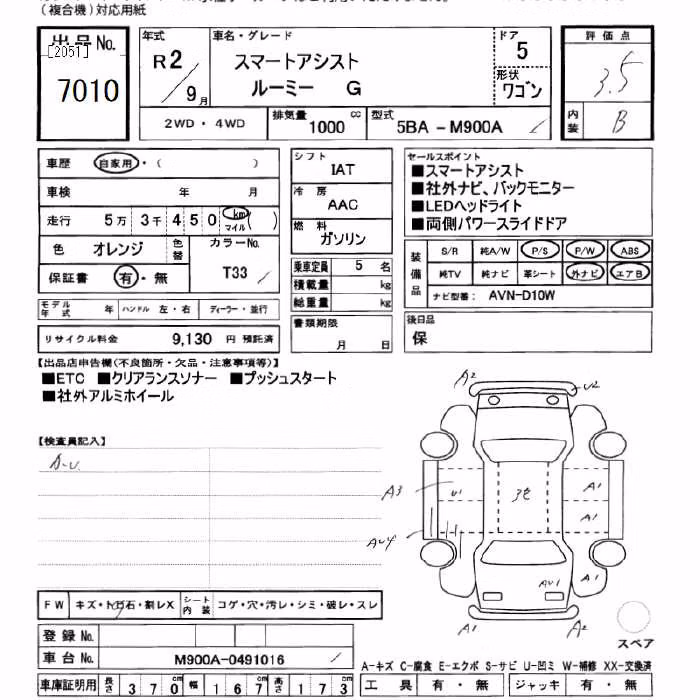 (複合機)対応用紙
出品No. [2051]
7010
年式 R2/9月
車名・グレード スマートアシスト
ルーミー G
ドア 5
形状 ワゴン
評価点 3.5
内装 B
2WD・4WD
排気量 1000 cc
型式 5BA-M900A
車歴 自家用・( )
車検 年 月
走行 5万 3千 450 km マイル ( )
色 オレンジ 色替
カラーNo. T33
保証書 有・無
シフト IAT
冷房 AAC
燃料 ガソリン
乗車定員 5 名
積載量 kg
総重量 kg
セールスポイント
■スマートアシスト
■社外ナビ、バックモニター
■LEDヘッドライト
■両側パワースライドドア
装備品 S/R 純A/W P/S P/W ABS
純TV 純ナビ 革シート 外ナビ エアB
ナビ型番: AVN-D10W
モデル年式 年 ハンドル 左・右 ディーラー・並行
リサイクル料金 9,130 円 預託済
書類期限 月 日
後日品 保
【出品店申告欄(不良箇所・欠品・注意事項等)】
■ETC ■クリアランスソナー ■プッシュスタート
■社外アルミホイール
【検査員記入】
A-U
A2
U2
A3
U1
3㐧
A1
A1
AU4
AU1
A1
A1
A2
スペア
FW キズ・トビ石・割レX シート内装 コゲ・穴・汚レ・シミ・破レ・スレ
登録No.
車台No. M900A-0491016
A-キズ C-腐食 E-エクボ S-サビ U-凹ミ W-補修 XX-交換済
車庫証明用 長さ 370 幅 167 高さ 173
工具 有・無 ジャッキ 有・無